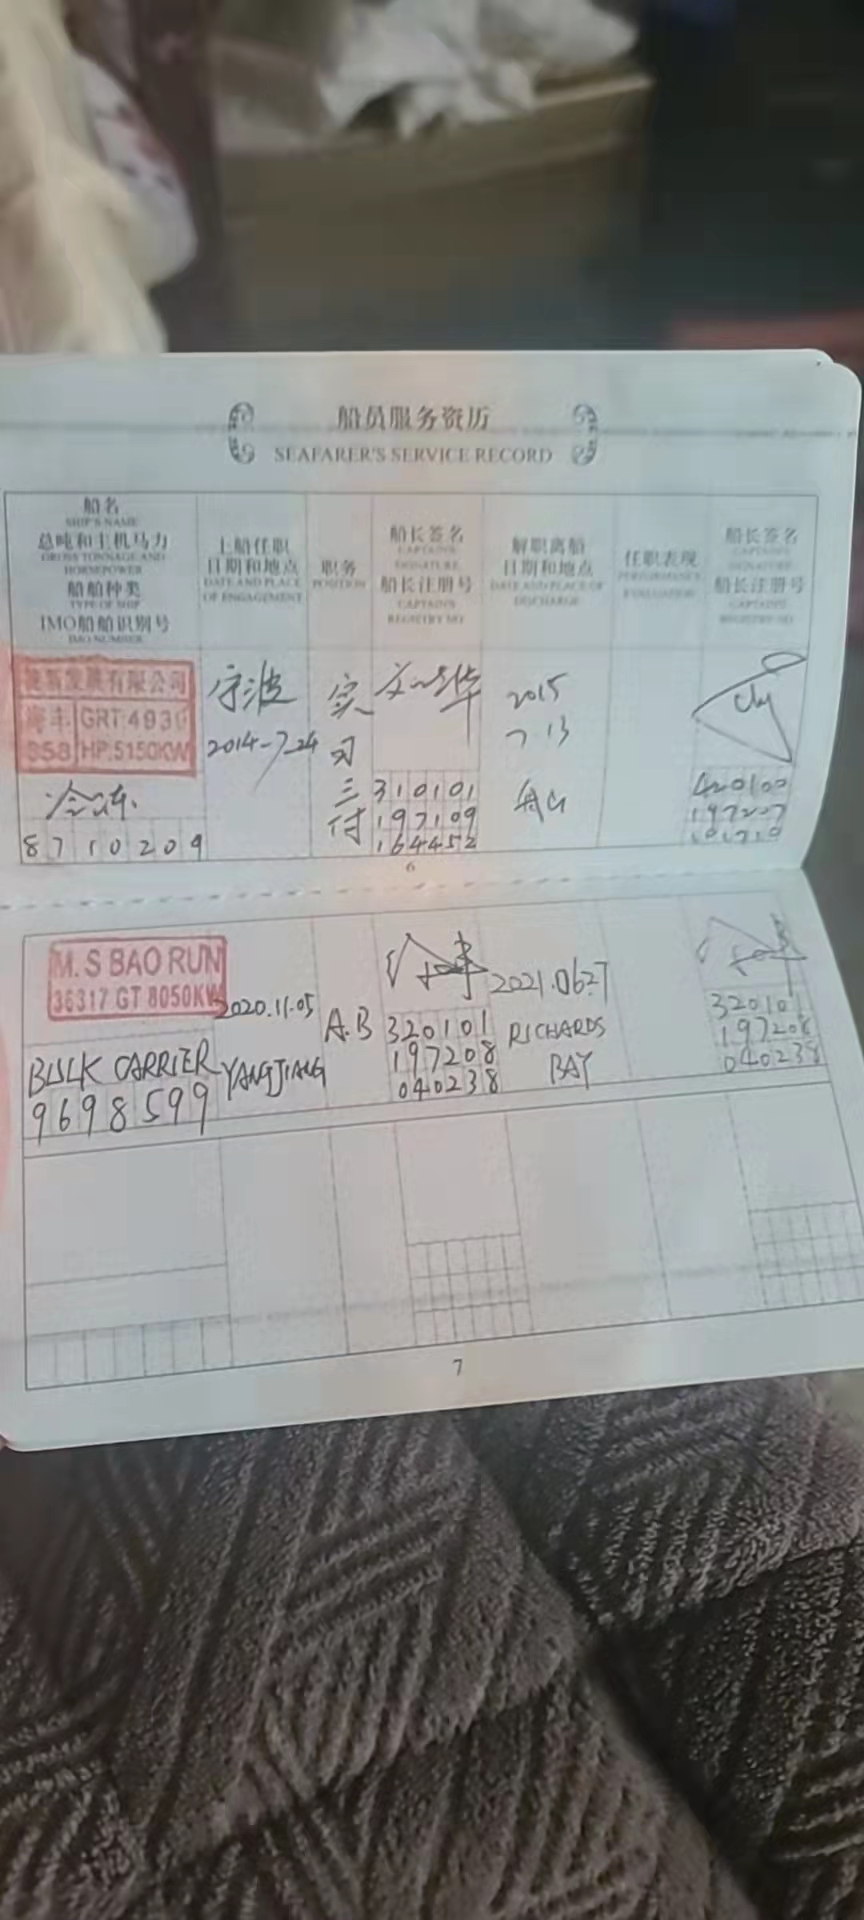 船员服务资历
SEAFARER'S SERVICE RECORD
船名
SHIP'S NAME
总吨和主机马力
GROSS TONNAGE AND
HORSEPOWER
船舶种类
TYPE OF SHIP
IMO船舶识别号
IMO NUMBER
上船任职
日期和地点
DATE AND PLACE
OF ENGAGEMENT
职务
POSITION
船长签名
CAPTAIN'S
SIGNATURE
船长注册号
CAPTAIN'S
REGISTRY NO
解职离船
日期和地点
DATE AND PLACE OF
DISCHARGE
任职表现
PERFORMANCE
EVALUATION
船长签名
CAPTAIN'S
SIGNATURE
船长注册号
CAPTAIN'S
REGISTRY NO
发展有限公司
海丰 GRT:4930
858 HP:5150KW
冷冻
8710209
宁波
2014-7-24
实
习
三
付
310101
197109
164452
2015
7 13
舟山
420100
6
M.S BAO RUN
36317 GT 8050KW
BULK CARRIER
9698599
2020.11.05
YANGJIANG
A.B
320101
197208
040238
2021.06.27
RICHARDS
BAY
320101
197208
040238
7